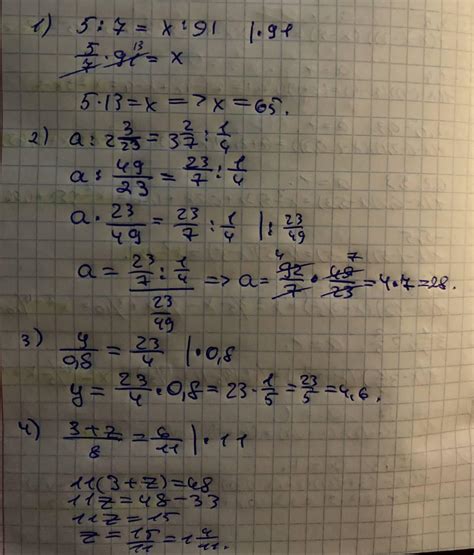 1) 5 : 7 = x : 91 | · 91
5/7 · 91 13 = x
5 · 13 = x => x = 65.
2) a : 2 3/23 = 3 2/7 : 1/4
a : 49/23 = 23/7 : 1/4
a · 23/49 = 23/7 : 1/4 | : 23/49
a = (23/7 : 1/4)/(23/49) => a = 4 92/7 · 49/23 7 = 4 · 7 = 28.
3) y/0,8 = 23/4 | · 0,8
y = 23/4 · 0,8 = 23 · 1/5 = 23/5 = 4,6.
4) (3+z)/8 = 6/11 | · 11
11(3+z) = 48
11z = 48 - 33
11z = 15
z = 15/11 = 1 4/11.